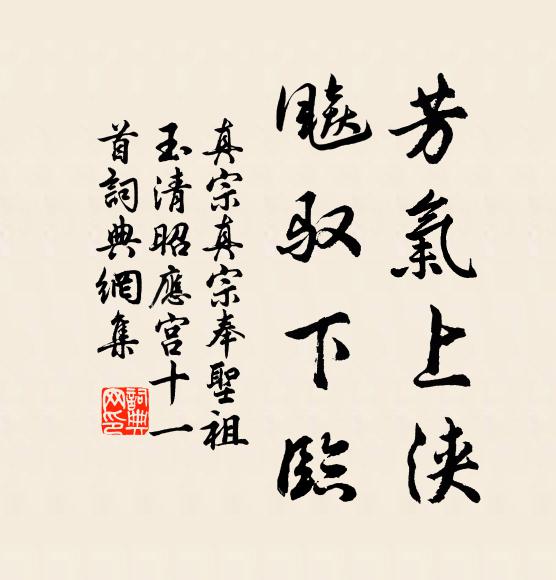 芳氣上浹
飈馭下臨
真宗真宗奉聖祖
玉清昭應宮十一
首詞典網集
詞典网印